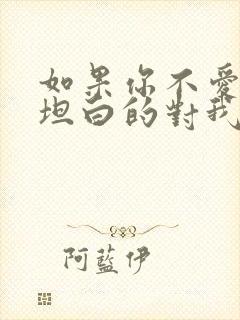 如果你不愛
坦白的對我
阿藍伊